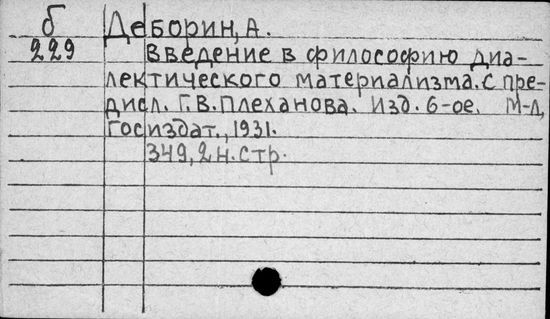 б Деборин, А.
229 Введение в философию диа-
лектического материализма. С пре-
дисл. Г.В. Плеханова. Изд. 6-ое. М-Л,
Госиздат., 1931.
349, 2 н. стр.